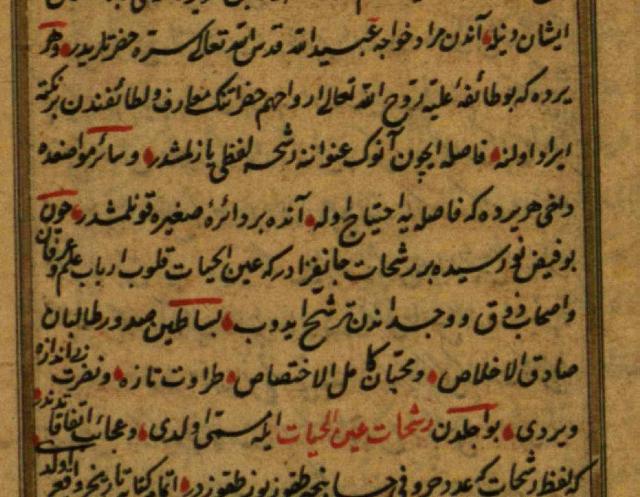 ایشان دنیله آندن مراد خواجه عبید الله قدس الله تعالی سره حضرتلریدر وهر
یرده که بو طائفهٔ علیه روح الله تعالی ارواحهم حضراتنک معارف ولطائفندن بر نکته
ایراد اولنه فاصله ایچون آنوک عنواننه رشحه لفظی یازلمشدر وسائر مواضعده
دخی هر یرده که فاصله یه احتیاج اوله آنده بر دائرهٔ صغیره قونلمشدر چون
بو فیض نو رسیده بر رشحات جانفزادر که عین الحیات قلوب ارباب علم وعرفان
واصحاب ذوق ووجداندن ترشح ایدوب بساطین صدور طالبان
صادق الاخلاص ومحبان کامل الاختصاص طراوت تازه ونضرت بی اندازه
ویردی بو اجلدن رشحات عین الحیات ایله مسمی اولدی وعجائب اتفاقاتدندر
که لفظ رشحات که عدد حروفی حسابنجه طقوز یوز طقوزدر اتمام کتابه تاریخ واقع اولدی